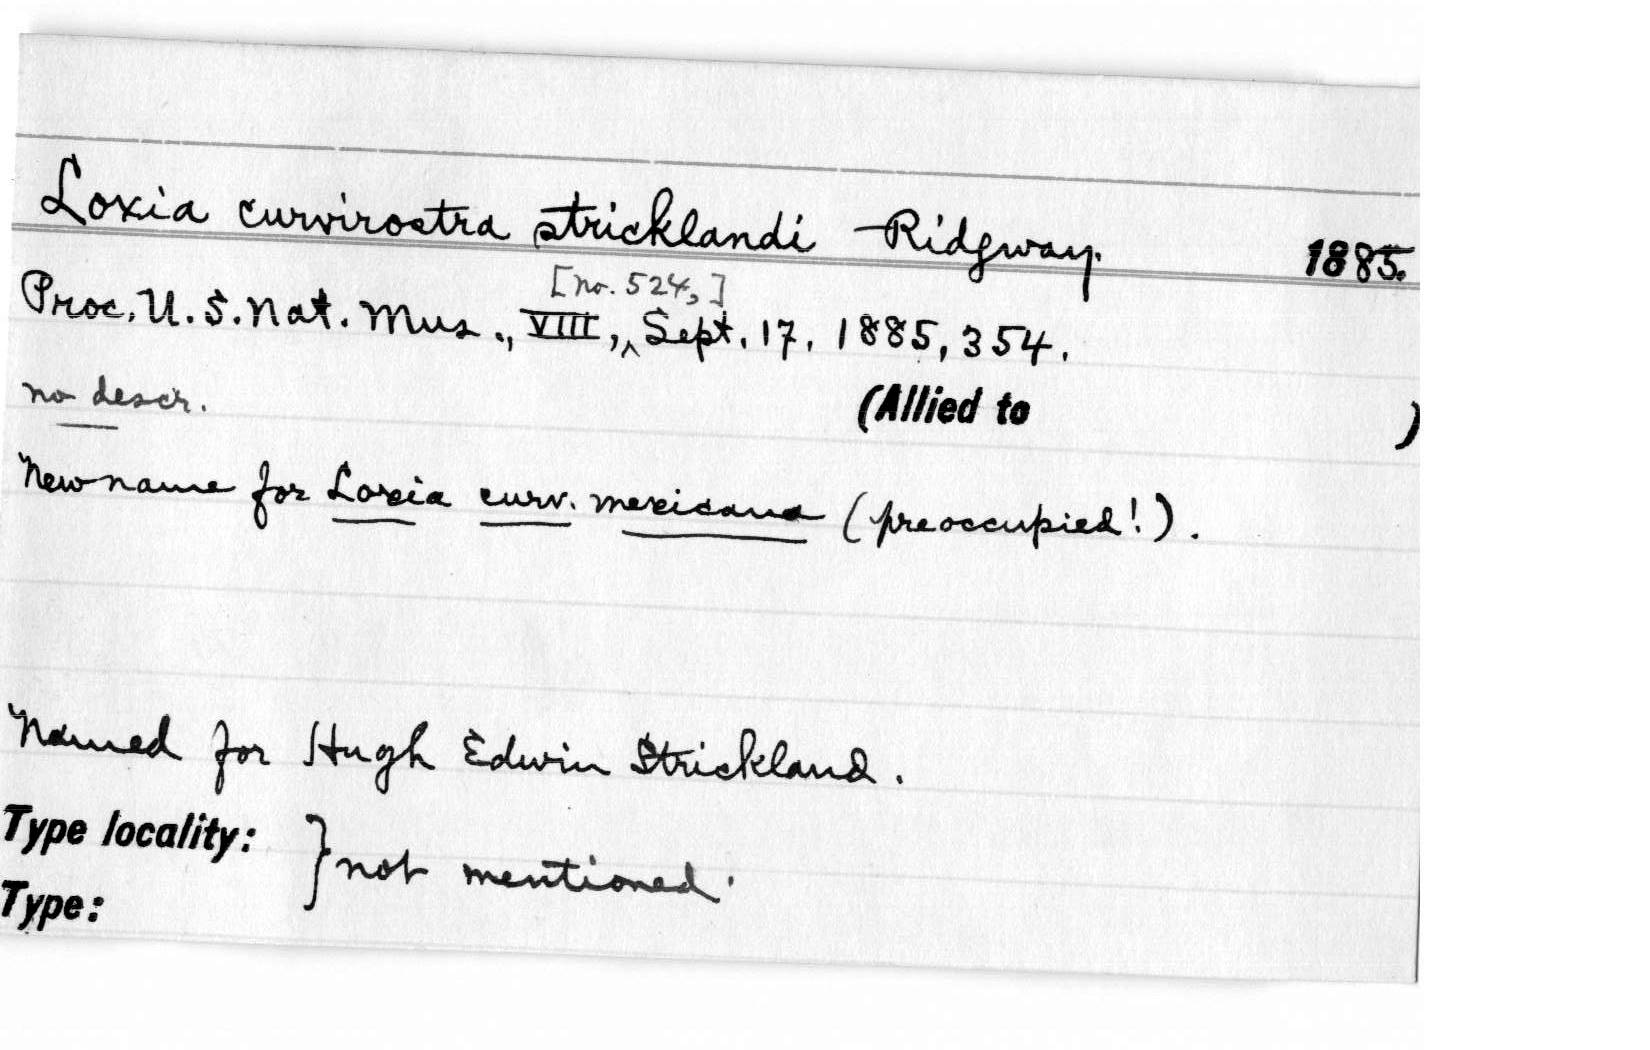 Loxia curvirostra stricklandi Ridgway. 1885.
[no. 524,]
Proc. U.S. Nat. Mus., VIII, ^ Sept. 17, 1885, 354.
no descr. (Allied to )
New name for Loxia curv. mexicana (preoccupied!).
Named for Hugh Edwin Strickland.
Type locality: } not mentioned.
Type: